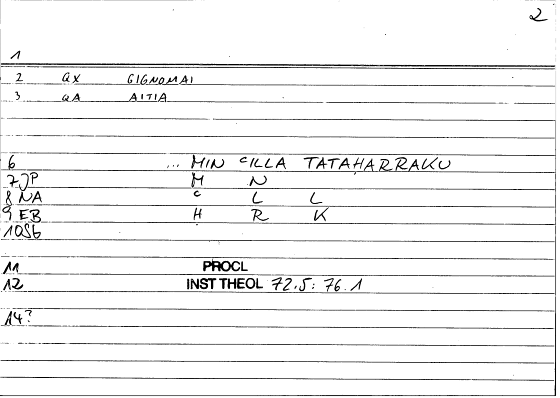 2
1
2 GX GIGNOMAI
3 GA AITIA
6 ... MIN ʿILLA TATAḤARRAKU
7 JP M N
8 NA ʿ L L
9 EB H R K
10 Sb
11 PROCL
12 INST THEOL 72.5: 76.1
14?